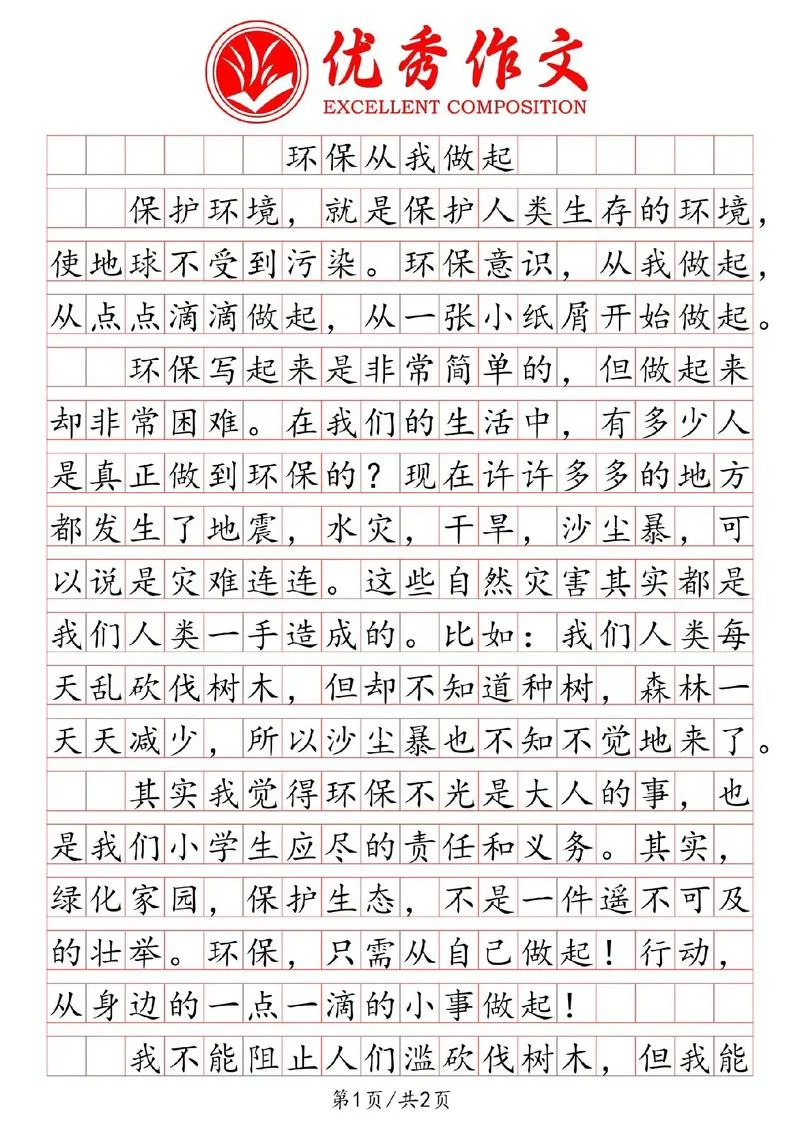 优秀作文
EXCELLENT COMPOSITION
环保从我做起
保护环境，就是保护人类生存的环境，
使地球不受到污染。环保意识，从我做起，
从点点滴滴做起，从一张小纸屑开始做起。
环保写起来是非常简单的，但做起来
却非常困难。在我们的生活中，有多少人
是真正做到环保的？现在许许多多的地方
都发生了地震，水灾，干旱，沙尘暴，可
以说是灾难连连。这些自然灾害其实都是
我们人类一手造成的。比如：我们人类每
天乱砍伐树木，但却不知道种树，森林一
天天减少，所以沙尘暴也不知不觉地来了。
其实我觉得环保不光是大人的事，也
是我们小学生应尽的责任和义务。其实，
绿化家园，保护生态，不是一件遥不可及
的壮举。环保，只需从自己做起！行动，
从身边的一点一滴的小事做起！
我不能阻止人们滥砍伐树木，但我能
第1页/共2页